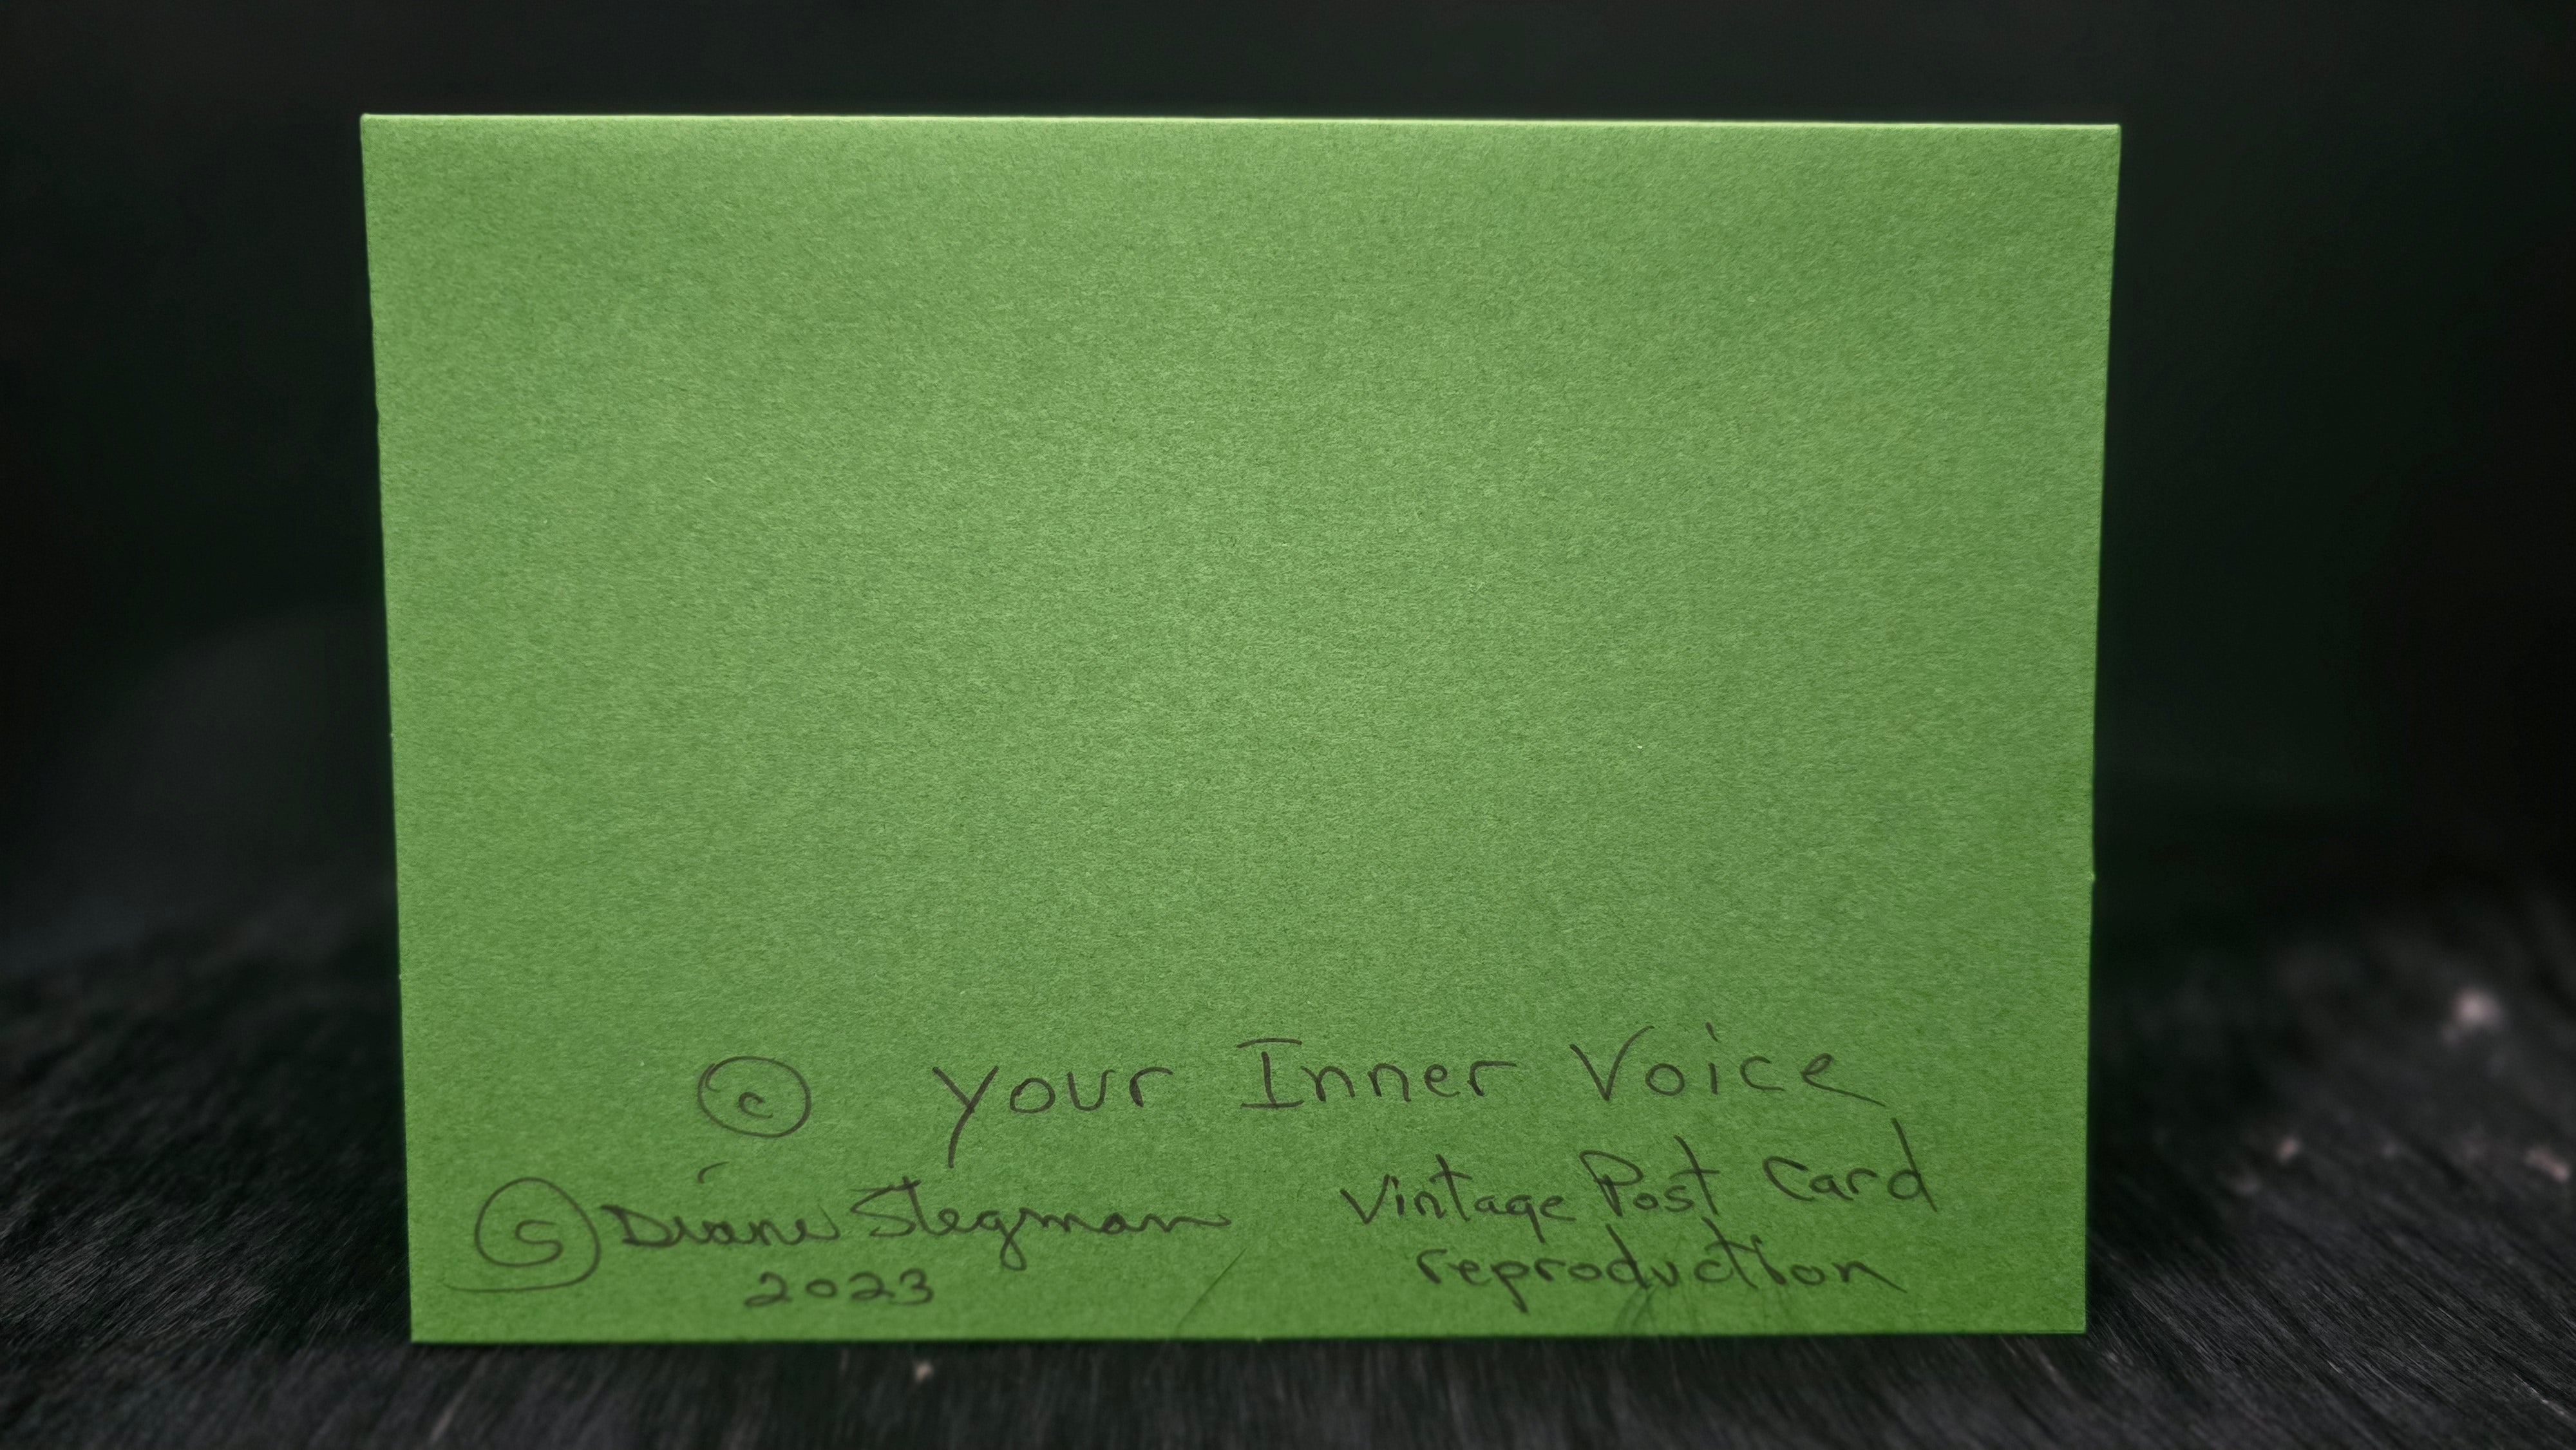 © Your Inner Voice
Ⓢ Diane Stegman
2023
Vintage Post Card
reproduction